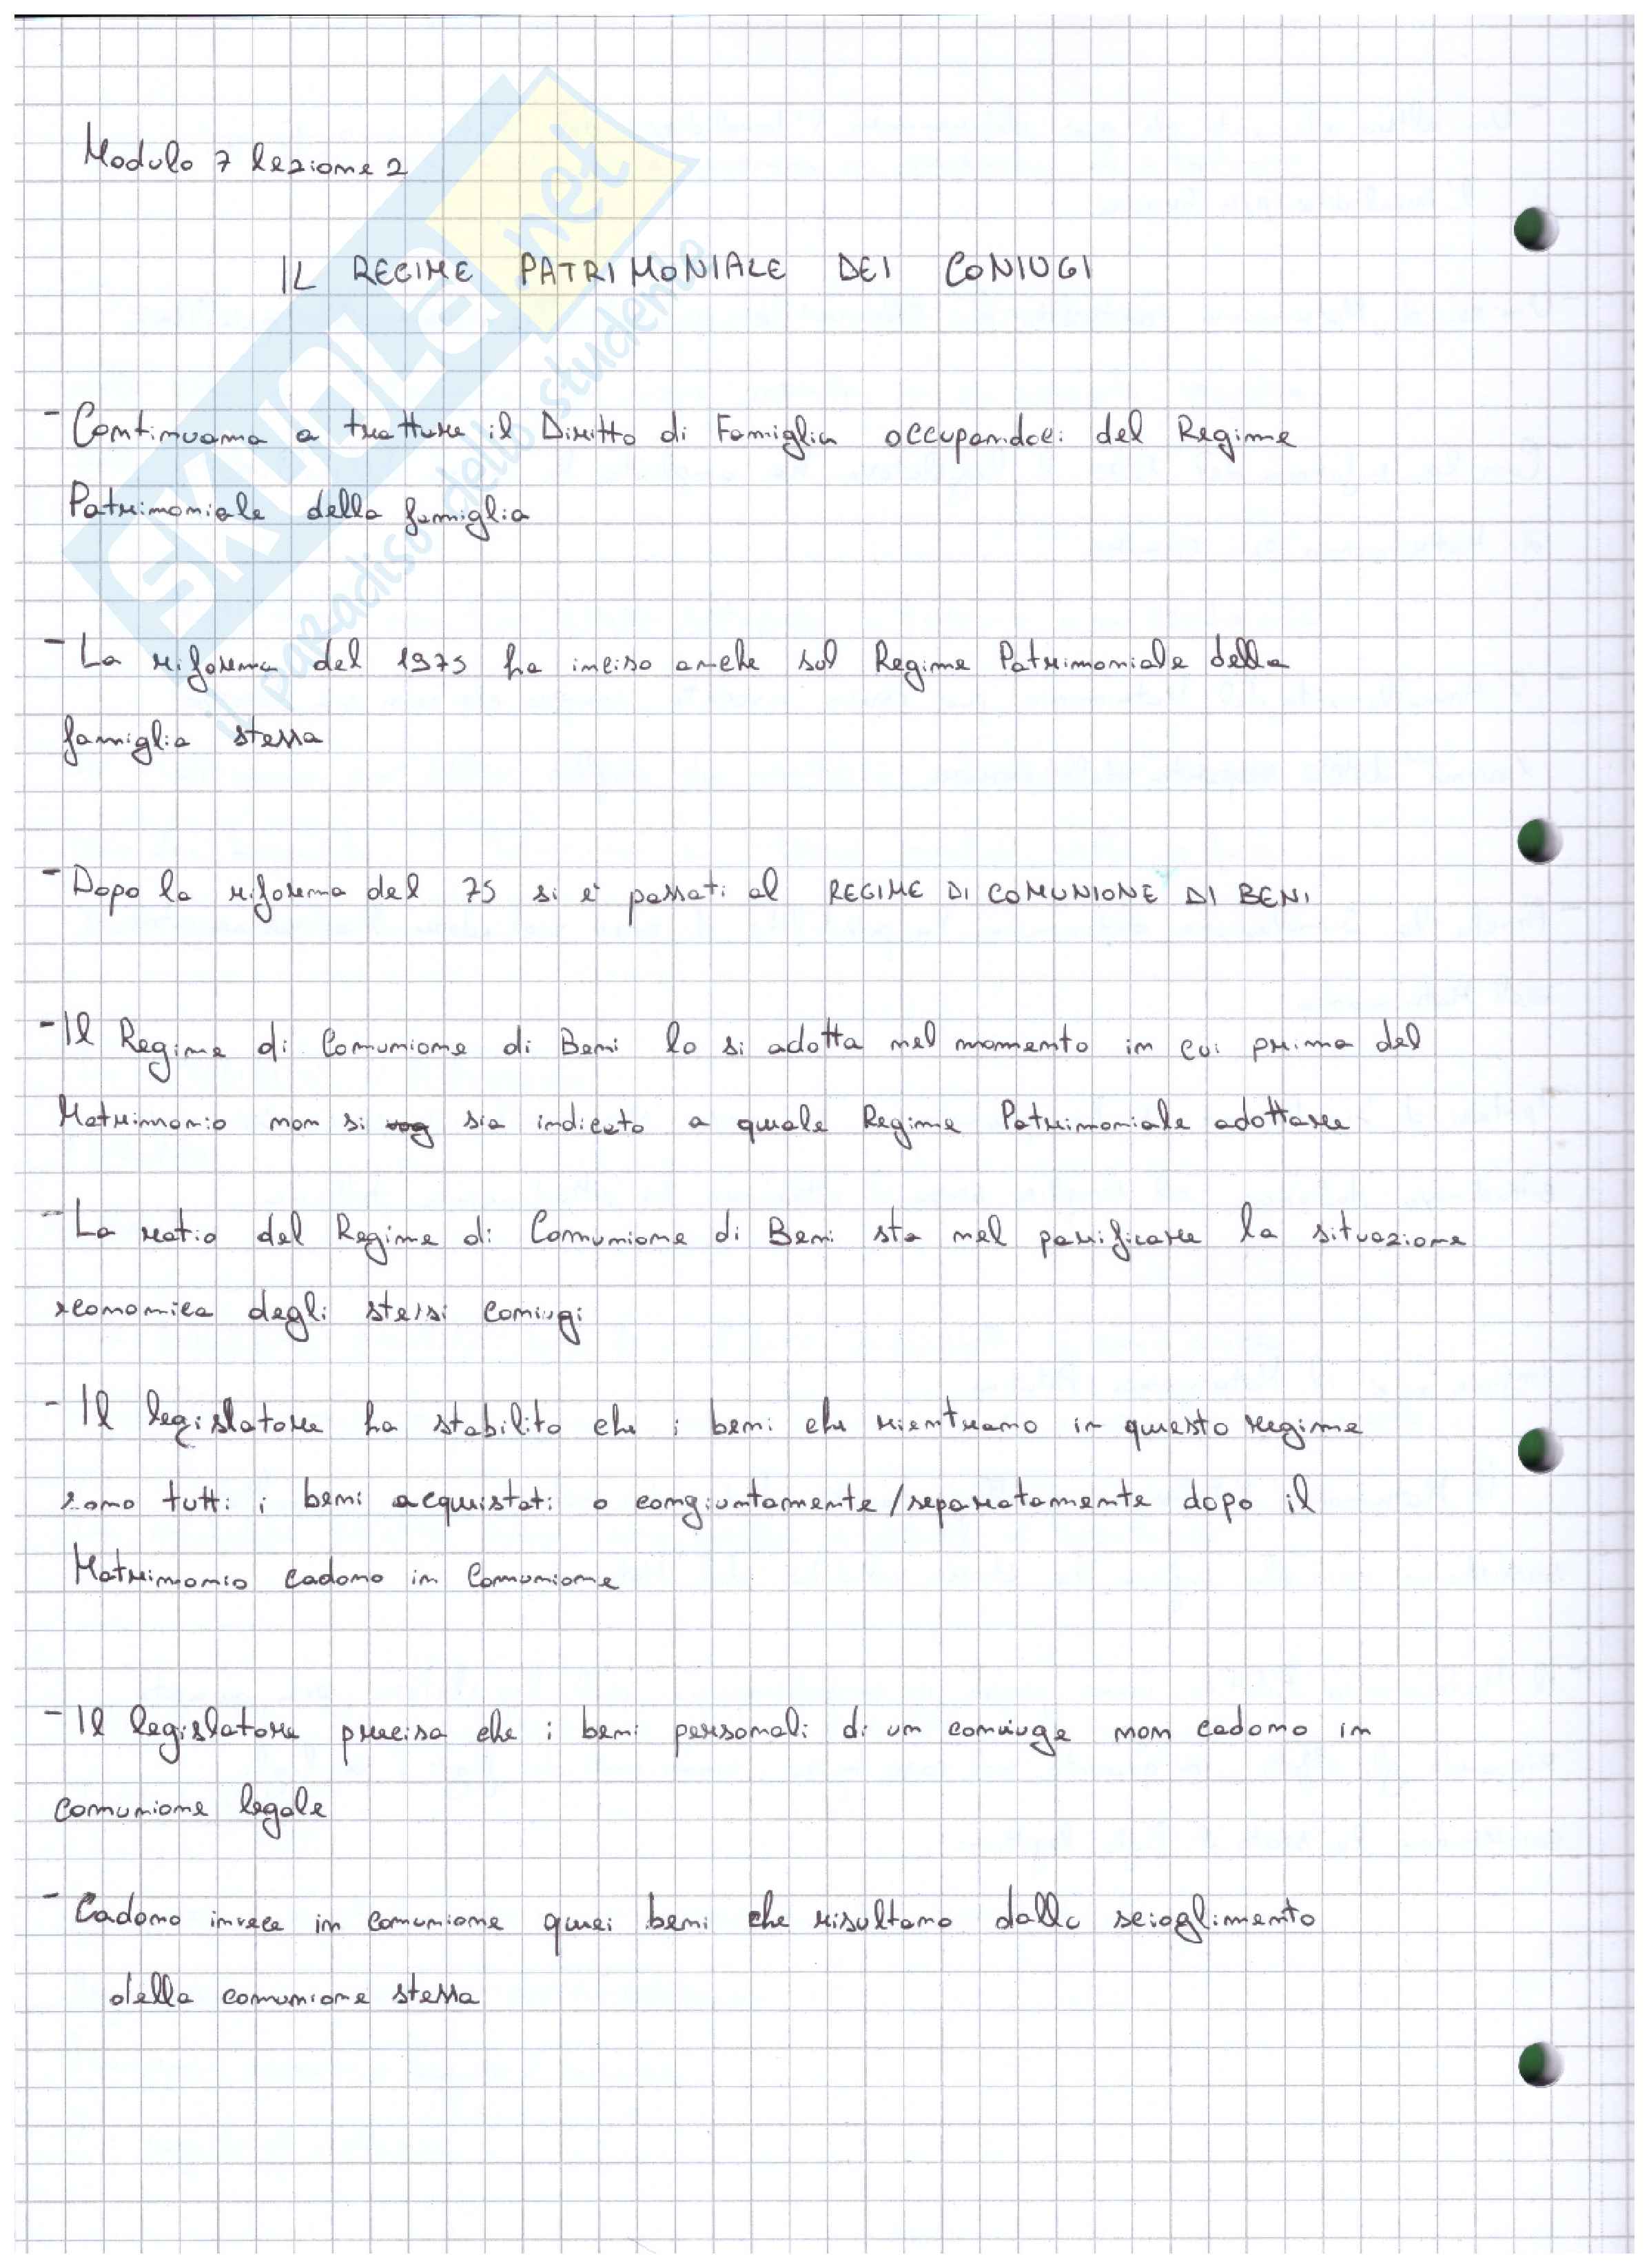 Modulo 7 lezione 2
IL REGIME PATRIMONIALE DEI CONIUGI
- Continuamo a trattare il Diritto di Famiglia occupandoci del Regime
Patrimoniale della famiglia
- La riforma del 1975 ha inciso anche sul Regime Patrimoniale della
famiglia stessa
- Dopo la riforma del 75 si è passati al REGIME DI COMUNIONE DI BENI
- Il Regime di Comunione di Beni lo si adotta nel momento in cui prima del
Matrimonio non si sia indicato a quale Regime Patrimoniale adottare
- La ratio del Regime di Comunione di Beni sta nel parificare la situazione
economica degli stessi coniugi
- Il legislatore ha stabilito che i beni che rientrano in questo regime
sono tutti i beni acquistati o congiuntamente/separatamente dopo il
Matrimonio cadono in Comunione
- Il legislatore precisa che i beni personali di un coniuge non cadono in
comunione legale
- Cadono invece in comunione quei beni che risultano dallo scioglimento
della comunione stessa
SKUOLA.net
il paradiso dello studente